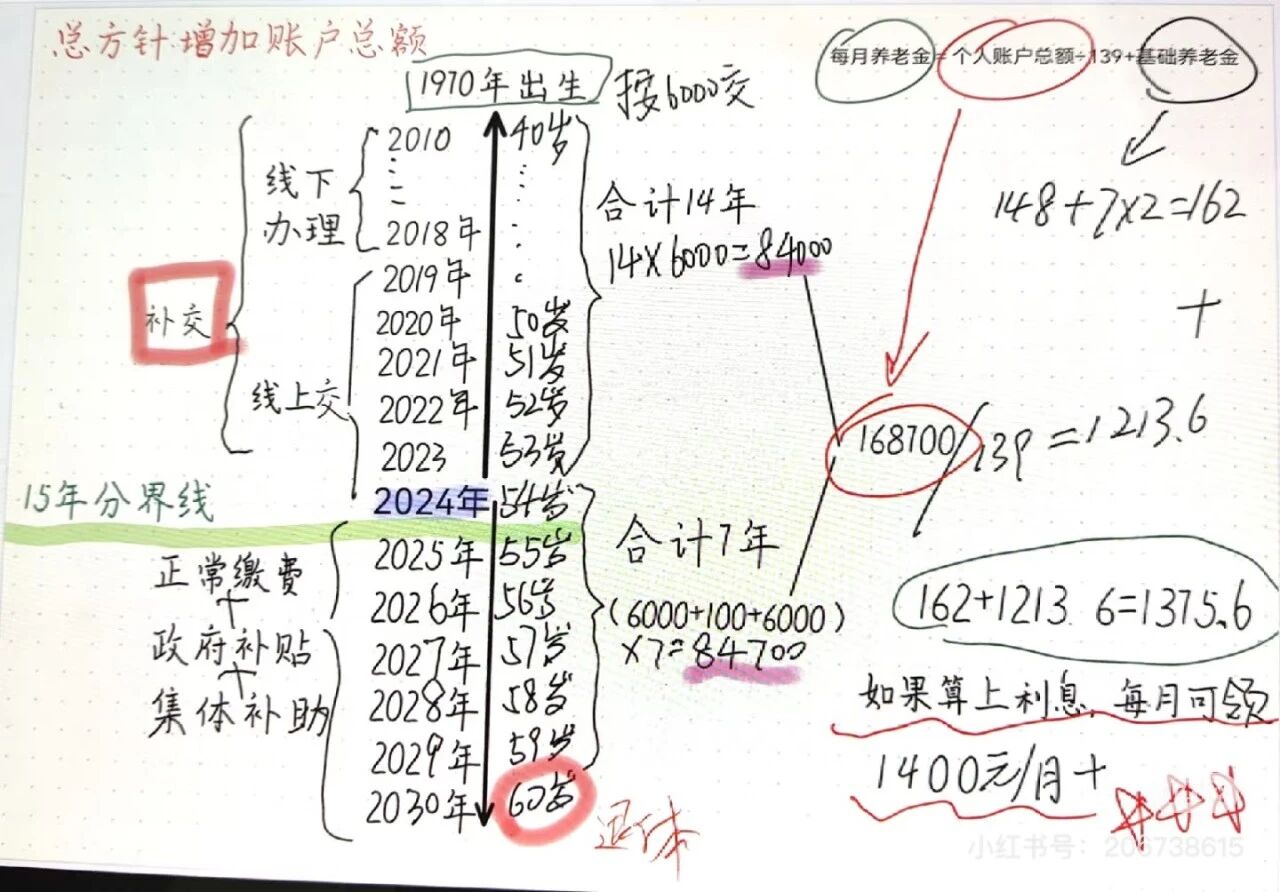 总方针增加账户总额
每月养老金=个人账户总额÷139+基础养老金
1970年出生
按6000交
2010 40岁
线下办理
2018年
2019年
补交
2020年 50岁
2021年 51岁
线上交
2022年 52岁
2023 53岁
合计14年
14×6000=84000
148+7×2=162
+
168700/139=1213.6
15年分界线
2024年 54岁
2025年 55岁
2026年 56岁
2027年 57岁
2028年 58岁
2029年 59岁
2030年 60岁
退休
正常缴费
+
政府补贴
+
集体补助
合计7年
(6000+100+6000)
×7=84700
162+1213 6=1375.6
如果算上利息,每月可领
1400元/月+
小红书号:206738615